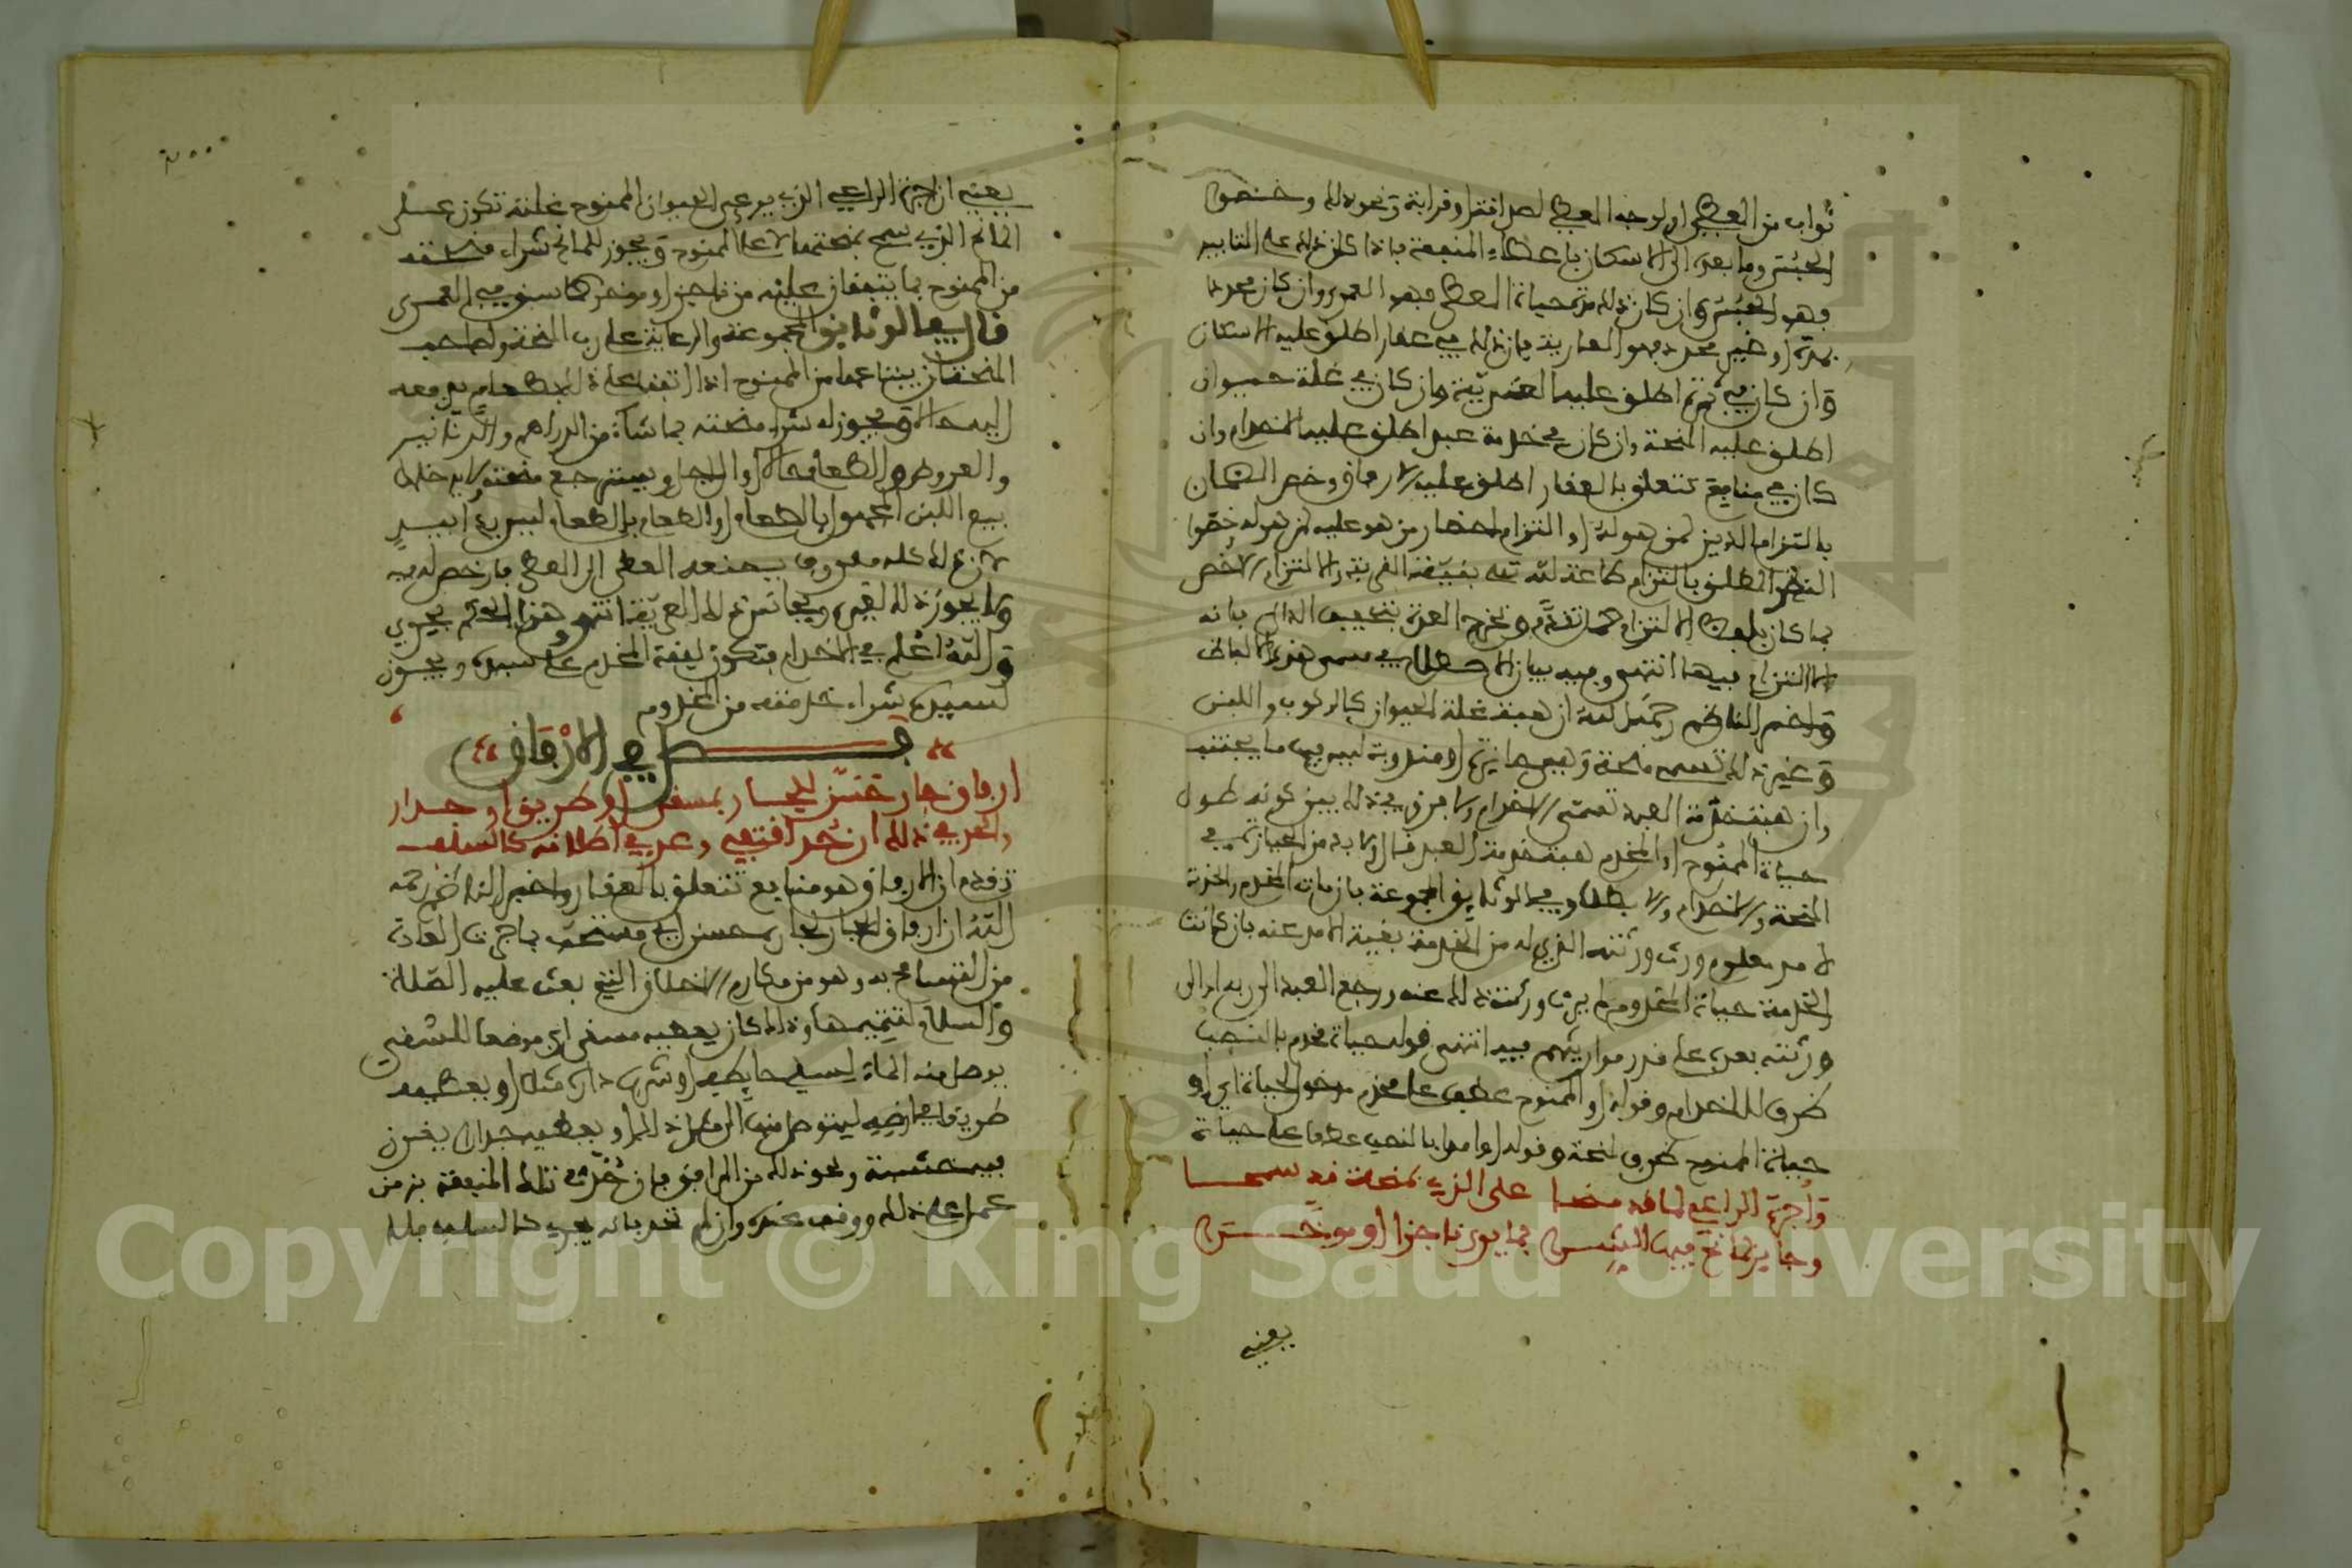 ثواب من المعطى او لوجه المعطى لصلة فقر او قرابة ونحو ذلك وخصوا
الحبس وما بعده الى الاسكان باعطاء المنفعة فاذا كان ذلك على التابيد
فهو الحبس وان كان ذلك مدة حياة المعطى فهو العمرى وان كان محددا
بمدة او غير محدد فهو العارية فان ذلك في عقار اطلق عليه الاسكان
وان كان في ثمرة اطلق عليها العرية وان كان في غلة حيوان
اطلق عليه المنحة وان كان في خدمة عبد اطلق عليها الاخدام وان
كان في منافع تتعلق بالعقار اطلق عليه الارفاق وخص الضمان
بالتزام الدين لمن هو له او التزام احضار من هو عليه لمن هو له وخصوا
النذر المطلق بالتزام طاعة لله تعالى بنية القربة والالتزام الاخص
بما كان بلفظ الالتزام كما تقدم وتخرج العدة بتخفيف الدال بانه
لا التزام فيها انتهى وفيه بيان الاصطلاح في مسمى هذه الالفاظ
واخبر الناظم رحمه الله ان هبة غلة الحيوان كالركوب واللبن
وغير ذلك تسمى منحة وهي جايزة او مندوبة ليس فيها ما يجتنب
وان هبة خدمة العبد تسمى الاخدام ولا فرق في ذلك بين كونه طول
حياة الممنوح او المخدم هبة خدمة العبد قال ولا بد من الحيازة في
المنحة والاخدام والا بطلا وفي الوثايق المجموعة فان مات المخدم والخدمة
لامد معلوم ورث ورثته الذي له من الخدمة بقية الامد عنه فان كانت
الخدمة حياة المخدوم لم يرث ورثته ذلك عنه ورجع العبد الى ربه او الى
ورثته بعده على قدر مواريثهم فيه انتهى قوله حياة مخدم بالنصب
ظرف للاخدام وقوله او الممنوح عطف على مخدم مدخول لحياة اي او
حياة الممنوح ظرف لمنحة وقوله او امدا بالنصب عطفا على حياة
واجرة الراعي لما قد منحا على الذي بمنحة قد سمحا
وجايز لمانح فيها الشرا بما يرى ناجزا او موخرا
يعني
يعني ان اجرة الراعي الذي يرعى الحيوان الممنوح غلته تكون على
المانح الذي سمح بمنحتها لا على الممنوح ويجوز للمانح شراء منحته
من الممنوح بما يتفقان عليه من ناجز او موخر كما سبق في العمرى
قال في الوثايق المجموعة والرعاية على رب المنحة ولصاحب
المنحة ان يبتاعها من الممنوح اذا اتفقا على ذلك بطعام يدفعه
اليه حالا ويجوز له شراء منحته بما شاء من الدراهم والدنانير
والعروض والطعام حالا او الى اجل ويسترجع منحته ولا يدخله
بيع اللبن المجهول بالطعام او الطعام بالطعام ليس يدا بيد
لان ذلك كله معروف يصنعه المعطى الى المعطى فارخص له فيه
ولا يجوز ذلك لغيره ويجانس ذلك العرية انتهى وهذا الحكم يجري
والله اعلم في الاخدام فتكون نفقة المخدم على سيده ويجوز
لسيده شراء خدمته من المخدوم
فصل في الارفاق
ارفاق جار حسن للجار بمسقى او طريق او جدار
والحد في ذلك ان حد اقتفي وعد في اطلاقه كالسلف
تقدم ان الارفاق هو منافع تتعلق بالعقار واخبر الناظم رحمه
الله ان ارفاق الجار لجاره حسن اي مستحب باجرت العادة
من التسامح به وهو من مكارم الاخلاق التي بعث عليه الصلاة
والسلام لتتميمها وذلك كان يعطيه مسقى اي موضعا للسقي
يوصل منه الماء لسقي حايطه او شرب داره مثلا او يعطيه
طريقا في ارضه ليتوصل منها الى مثل ذلك او يعطيه جدارا يغرز
فيه خشبة ونحو ذلك من المرافق فان حدت تلك المنفعة بزمن
عمل على ذلك ووقف عنده وان لم تحد فانه يجري كالسلف فله
Copyright © King Saud University